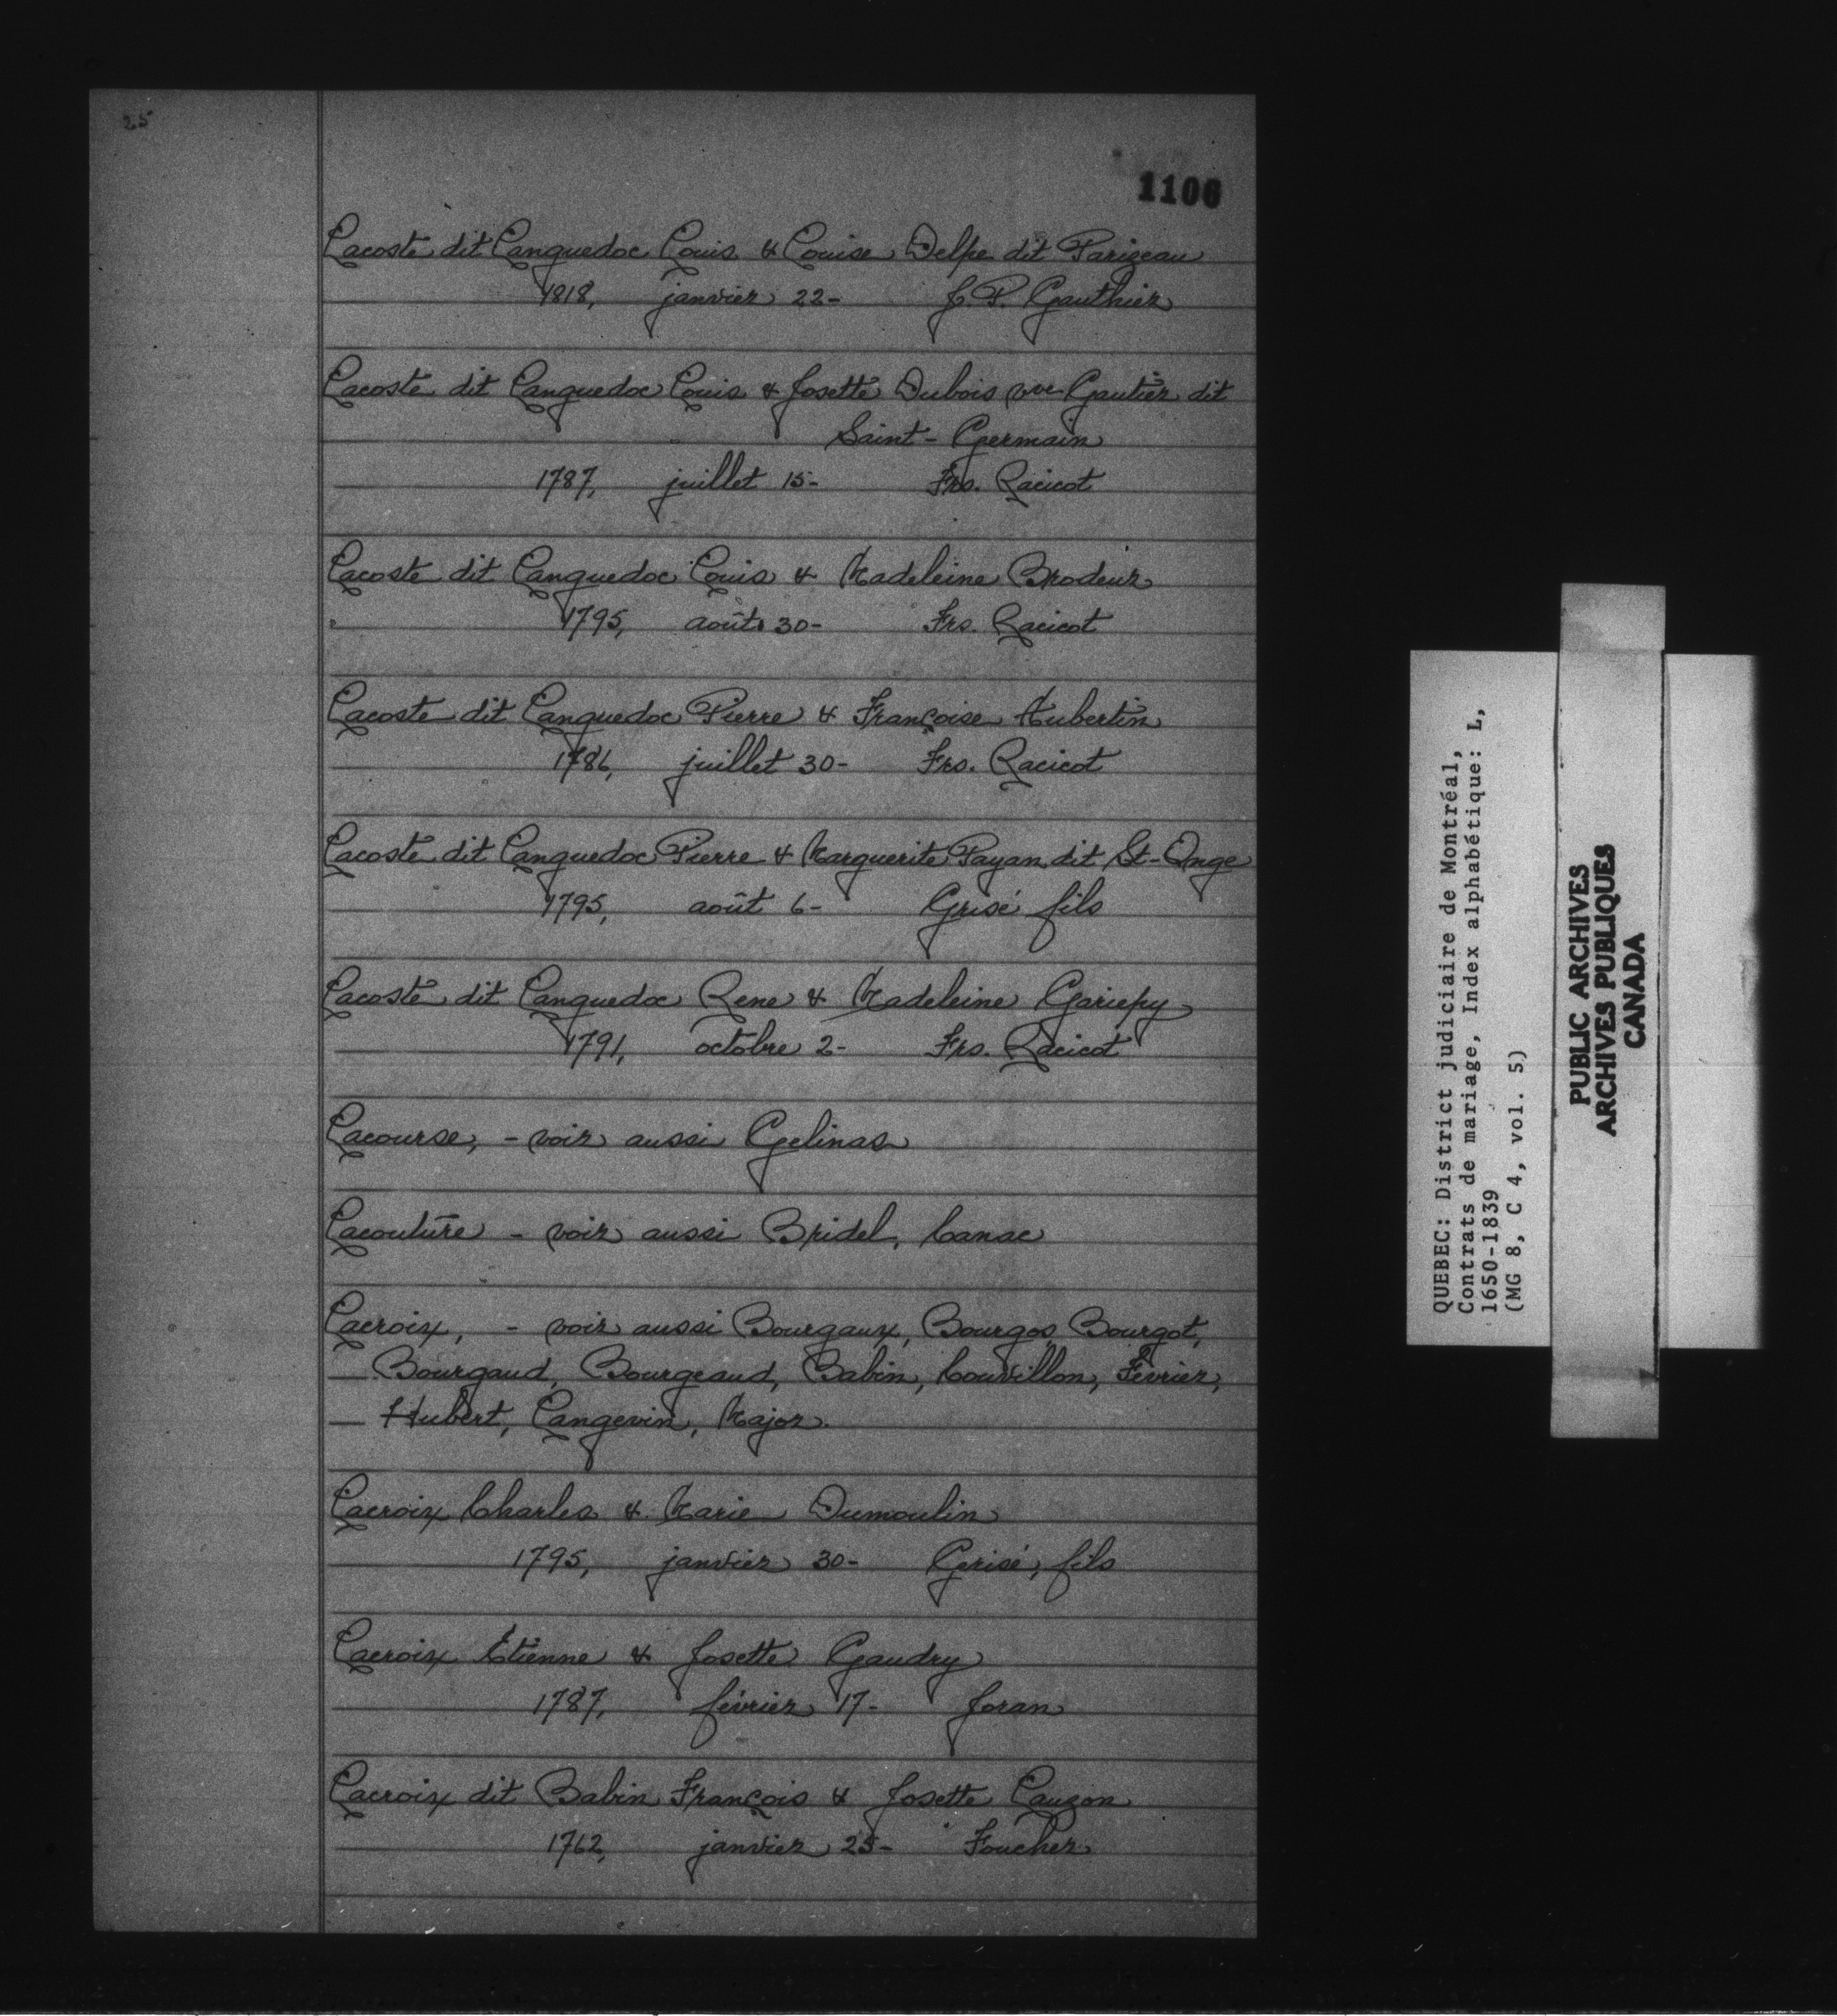 25
1106
Lacoste dit Languedoc Louis & Louise Delpe dit Parizeau
1818, janvier 22- J. P. Gauthier
Lacoste dit Languedoc Louis & Josette Dubois vve Gautier dit
Saint-Germain
1787, juillet 15- Frs. Racicot
Lacoste dit Languedoc Louis & Madeleine Brodeur
1795, août 30- Frs. Racicot
Lacoste dit Languedoc Pierre & Françoise Aubertin
1786, juillet 30- Frs. Racicot
Lacoste dit Languedoc Pierre & Marguerite Payan dit St-Onge
1795, août 6- Grisé fils
Lacoste dit Languedoc Rene & Madeleine Gariepy
1791, octobre 2- Frs. Racicot
Lacourse, - voir aussi Gelinas
Lacouture - voir aussi Bridel, Canac
Lacroix, - voir aussi Bourgaux, Bourgos, Bourgot,
Bourgaud, Bourgeaud, Babin, Couvillon, Fevrier,
Hubert, Langevin, Major.
Lacroix Charles & Marie Dumoulin
1795, janvier 30- Grisé, fils
Lacroix Étienne & Josette Gaudry
1787, février 17- Joran
Lacroix dit Babin François & Josette Lauzon
1762, janvier 25- Foucher
QUEBEC: District judiciaire de Montréal,
Contrats de mariage, Index alphabétique: L,
1650-1839
(MG 8, C 4, vol. 5)
PUBLIC ARCHIVES
ARCHIVES PUBLIQUES
CANADA